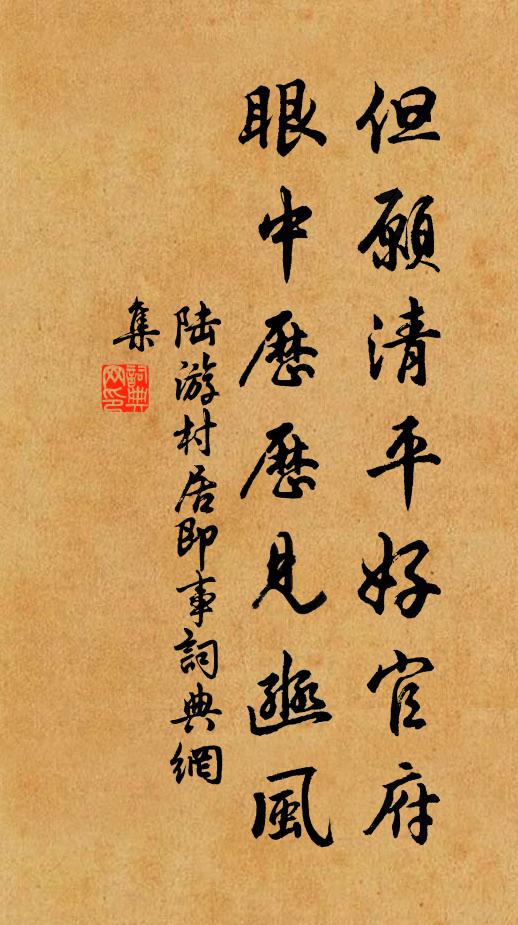 但願清平好官府
眼中歷歷見豳風
陸游村居即事詞典網
集
詞典
网印